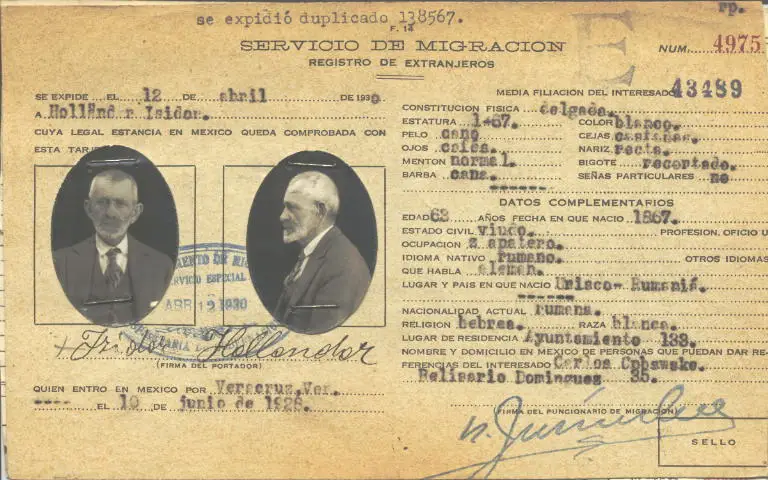 se expidió duplicado 138567.
rp.
F. 14
SERVICIO DE MIGRACION
REGISTRO DE EXTRANJEROS
NUM. 4975
43489
SE EXPIDE EL 12 DE abril DE 1930
A Isidor.
CUYA LEGAL ESTANCIA EN MEXICO QUEDA COMPROBADA CON
ESTA
ABR 12 1930
Isidor Hollender
(FIRMA DEL PORTADOR)
QUIEN ENTRO EN MEXICO POR Veracruz, Ver.
EL 10 DE junio de 1928.
MEDIA FILIACION DEL INTERESADO
CONSTITUCION FISICA delgada.
ESTATURA 1-67. COLOR blanco.
PELO cano CEJAS castañas.
OJOS cafes. NARIZ recta.
MENTON normal. BIGOTE recortado.
BARBA cana. SEÑAS PARTICULARES no
DATOS COMPLEMENTARIOS
EDAD 63 AÑOS FECHA EN QUE NACIO 1867.
ESTADO CIVIL viudo. PROFESION, OFICIO U
OCUPACION zapatero.
IDIOMA NATIVO rumano. OTROS IDIOMAS
QUE HABLA aleman.
LUGAR Y PAIS EN QUE NACIO Rumaniá.
NACIONALIDAD ACTUAL rumana.
RELIGION hebrea. RAZA blanca.
LUGAR DE RESIDENCIA Ayuntamiento 133.
NOMBRE Y DOMICILIO EN MEXICO DE PERSONAS QUE PUEDAN DAR RE-
FERENCIAS DEL INTERESADO Carlos
Belisario Dominguez 35.
(FIRMA DEL FUNCIONARIO DE MIGRACION)
SELLO